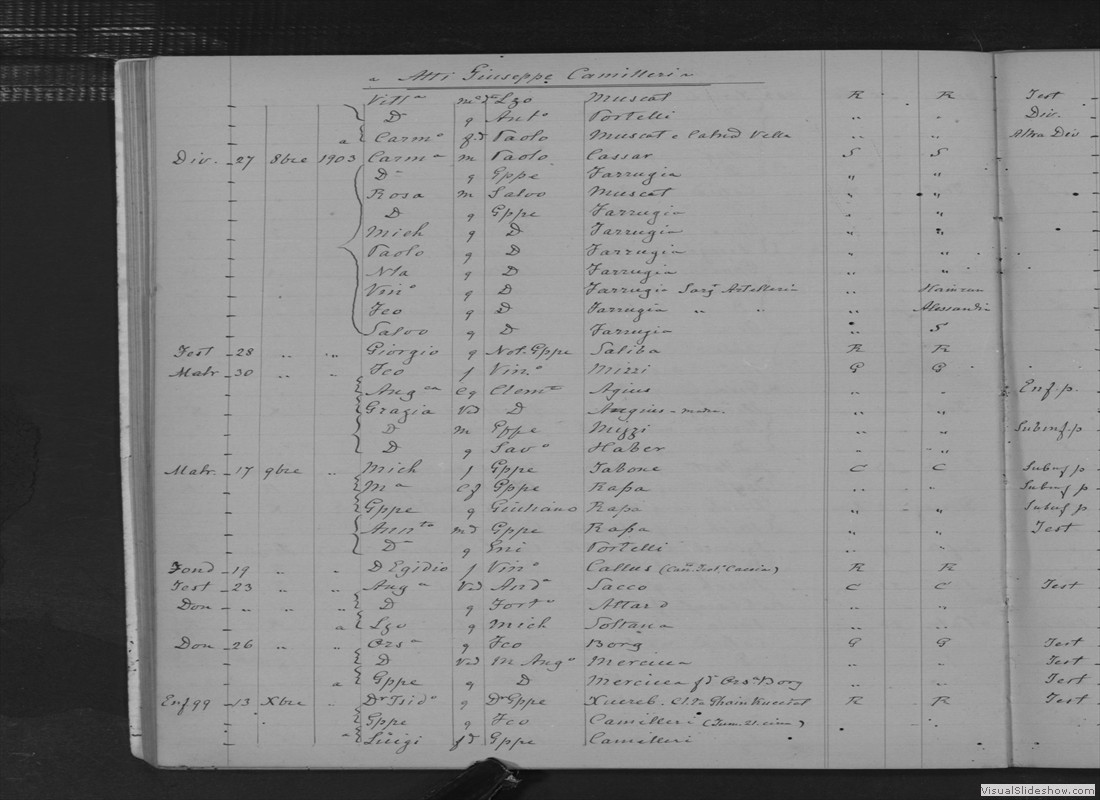 Atti Giuseppe Camilleri
Vitta mo d Lzo Muscat R R Test
D g Anto Portelli " " Div.
a Carmo fd Paolo Muscat e Catnd Vella " " Altra Div
Div. 27 8bre 1903 Carma m Paolo Cassar S S
D g Gppe Farrugia " "
Rosa m Salvo Muscat " "
D g Gppe Farrugia " "
Mich g D Farrugia " "
Paolo g D Farrugia " "
Nta g D Farrugia " "
Vino g D Farrugia Sarg Artelleria " Hamrun
Fco g D Farrugia " " " Alessandria
Salvo g D Farrugia " S
Test 28 " " Giorgio g Not. Gppe Saliba R R
Matr 30 " " Fco f Vino Mizzi G G
Auga eg Clemte Agius " " Enf. p.
Grazia Vd D " "
D m Gppe Mizzi " " Subenf. p
D g Savo Haber " "
Matr. 17 9bre " Mich f Gppe Tabone C C Subenf p
Ma ef Gppe Rapa " " Subenf p
Gppe g Giuliano Rapa " " Subenf p
Annta md Gppe Rapa " " Test
D g Gni Portelli " "
Fond 19 " " D Egidio f Vino Callus R R
Test 23 " " Auga Vd Anda Sacco C C Test
Don " " " D g Forto Attard " "
a Lzo g Mich Soltana " "
Don 26 " " Orsa g Fco Borg G G Test
D Vd M Augo Mercieca " " Test
a Gppe g D Mercieca fd Orsa Borg " " Test
Enfgg 13 Xbre " Dr Isido g Dr Gppe Xuereb R R Test
Gppe g Fco Camilleri " "
a Luigi fd Gppe Camilleri " "
VisualSlideshow.com